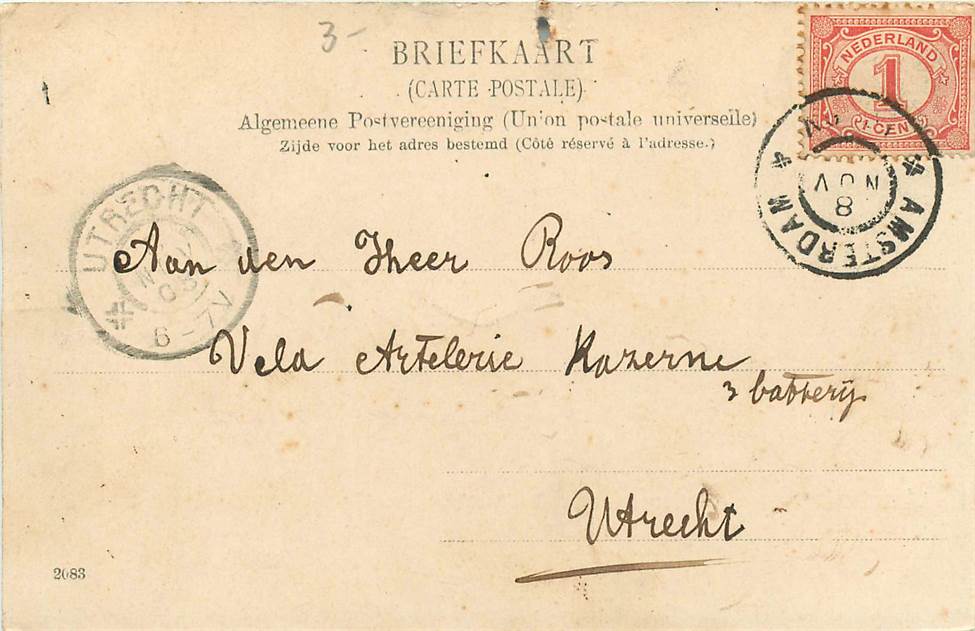 3-
BRIEFKAART
(CARTE POSTALE)
Algemeene Postvereeniging (Union postale universelle)
Zijde voor het adres bestemd (Côté réservé à l'adresse.)
NEDERLAND
1
CENT
AMSTERDAM
8
NOV
UTRECHT
Aan den Heer Roos
Veld Artelerie Kazerne
3 batterij
Utrecht
2083